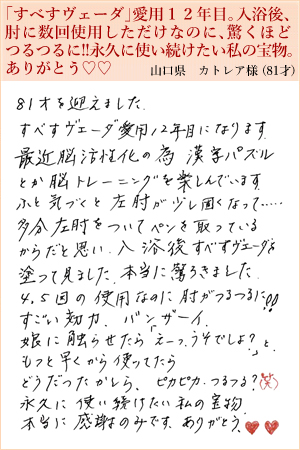 「すべすヴェーダ」愛用１２年目。入浴後、
肘に数回使用しただけなのに、驚くほど
つるつるに!!永久に使い続けたい私の宝物。
ありがとう♡♡
山口県　カトレア様（81才）
81才を迎えました.
すべすヴェーダ愛用12年目になります.
最近脳活性化の為 漢字パズル
とか脳トレーニングを楽しんでいます.
ふと気づくと 左肘が少し固くなって……
多分左肘をついてペンを取っている
からだと思い. 入浴後すべすヴェーダを
塗って見ました. 本当に驚ろきました.
4.5回の使用なのに肘がつるつるに!!
すごい効力. バンザーイ.
娘に触らせたら「えーっ.うそでしょ？」と.
もっと早くから使ってたら
どうだったかしら. ピカピカ.つるつる？
永久に使い続けたい私の宝物.
本当に感謝のみです. ありがとう.